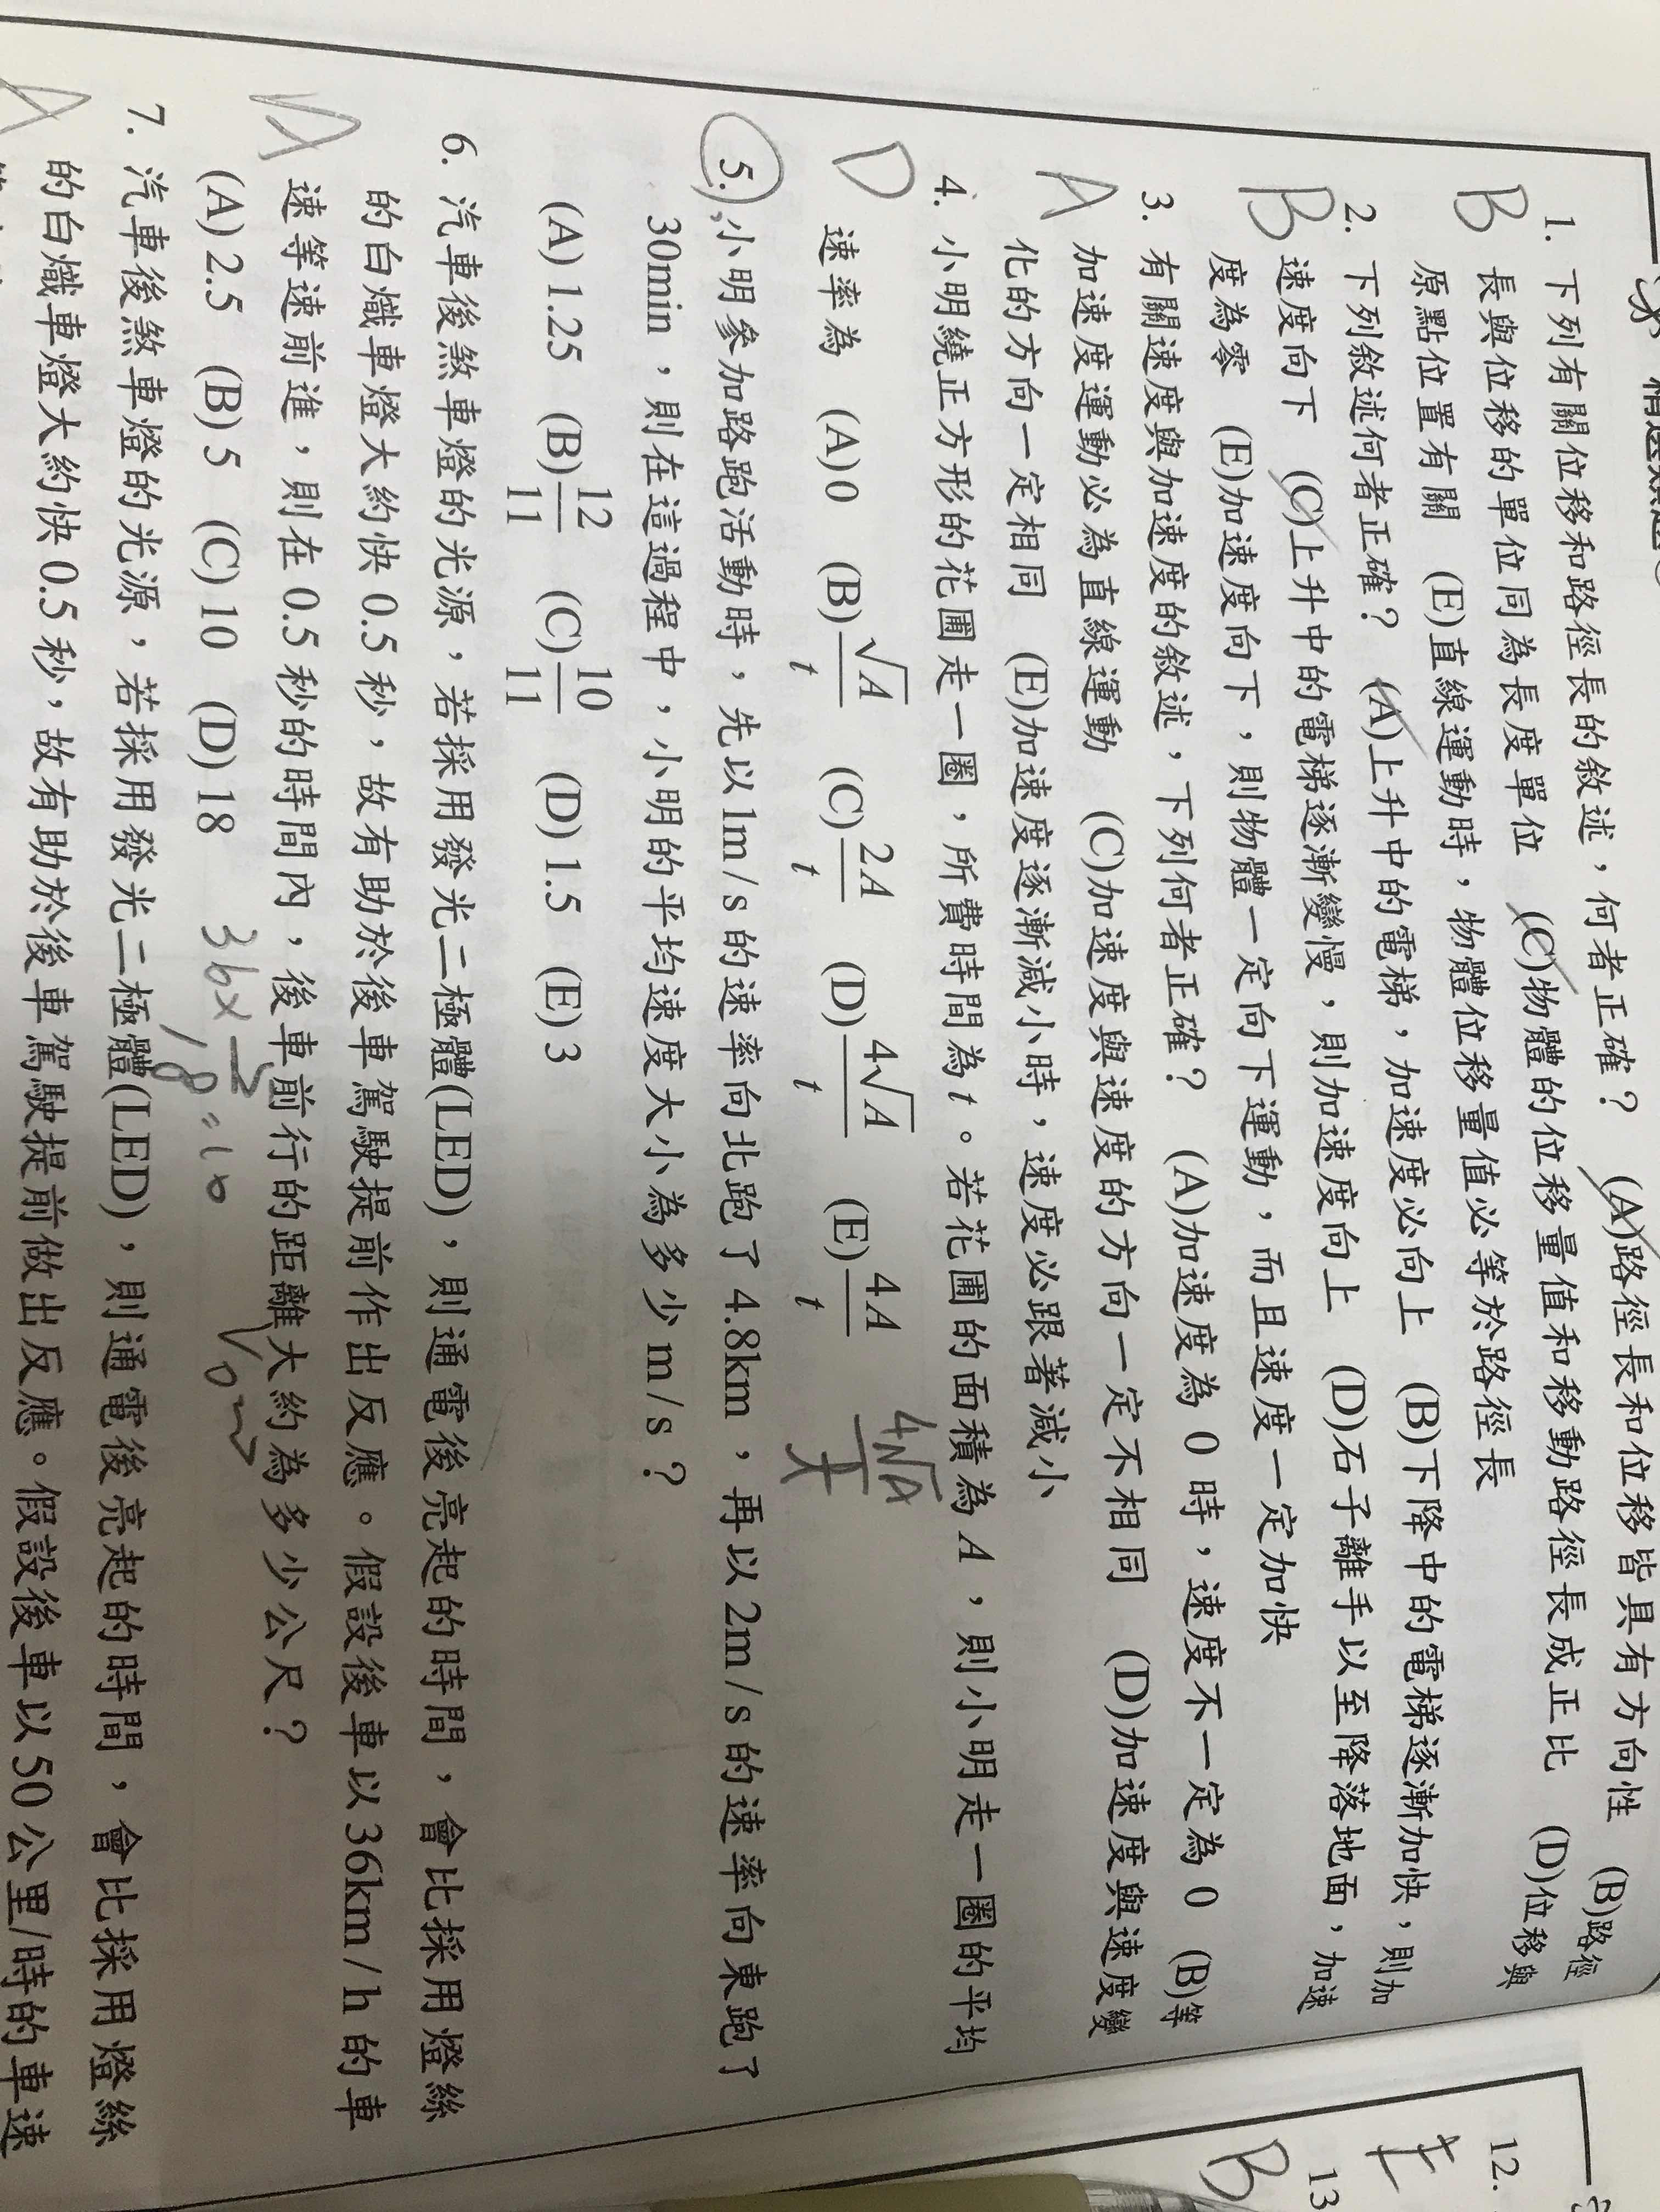 1. 下列有關位移和路徑長的敘述，何者正確？ (A)路徑長和位移皆具有方向性 (B)路徑
B 長與位移的單位同為長度單位 (C)物體的位移量值和移動路徑長成正比 (D)位移與
原點位置有關 (E)直線運動時，物體位移量值必等於路徑長
2. 下列敘述何者正確？ (A)上升中的電梯，加速度必向上 (B)下降中的電梯逐漸加快，則加
B 速度向下 (C)上升中的電梯逐漸變慢，則加速度向上 (D)石子離手以至降落地面，加速
度為零 (E)加速度向下，則物體一定向下運動，而且速度一定加快
3. 有關速度與加速度的敘述，下列何者正確？ (A)加速度為 0 時，速度不一定為 0 (B)等
A 加速度運動必為直線運動 (C)加速度與速度的方向一定不相同 (D)加速度與速度變
化的方向一定相同 (E)加速度逐漸減小時，速度必跟著減小
4. 小明繞正方形的花圃走一圈，所費時間為 t。若花圃的面積為 A，則小明走一圈的平均
D 速率為 (A)0 (B)√A/t (C)2A/t (D)4√A/t (E)4A/t 4√A/t
5. 小明參加路跑活動時，先以1m/s 的速率向北跑了 4.8km，再以 2m/s 的速率向東跑了
30min，則在這過程中，小明的平均速度大小為多少 m/s？
(A) 1.25 (B) 12/11 (C) 10/11 (D) 1.5 (E) 3
6. 汽車後煞車燈的光源，若採用發光二極體(LED)，則通電後亮起的時間，會比採用燈絲
的白熾車燈大約快 0.5 秒，故有助於後車駕駛提前作出反應。假設後車以 36km/h 的車
A 速等速前進，則在 0.5 秒的時間內，後車前行的距離大約為多少公尺？
(A) 2.5 (B) 5 (C) 10 (D) 18 36×5/18=10
7. 汽車後煞車燈的光源，若採用發光二極體(LED)，則通電後亮起的時間，會比採用燈絲
A 的白熾車燈大約快 0.5 秒，故有助於後車駕駛提前做出反應。假設後車以 50 公里/時的車速
12.
E
13
B